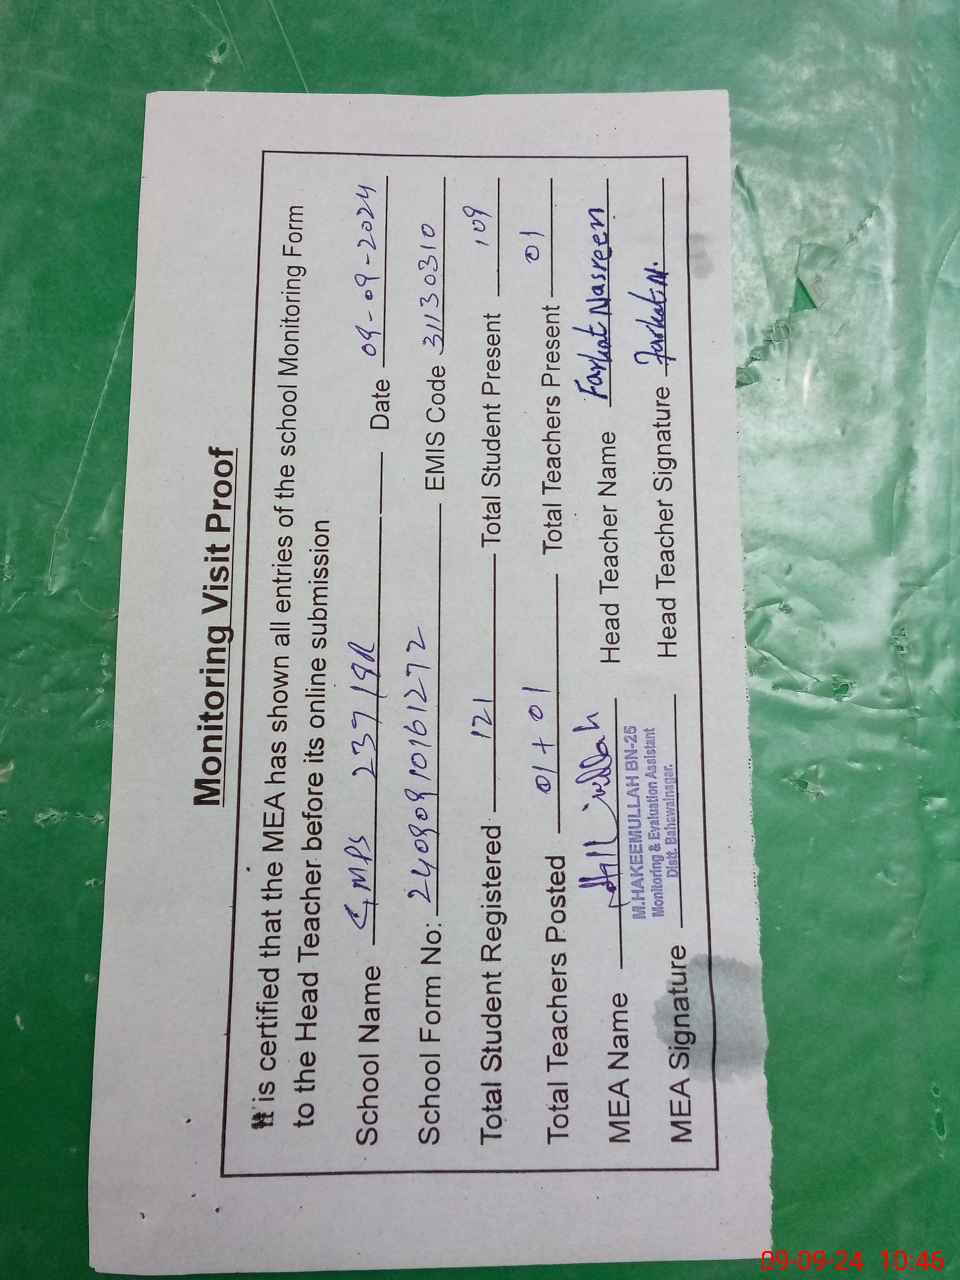 Monitoring Visit Proof
It is certified that the MEA has shown all entries of the school Monitoring Form
to the Head Teacher before its online submission
School Name GMPS 237/9R Date 09-09-2024
School Form No: 24090910161272 EMIS Code 31130310
Total Student Registered 121 Total Student Present 109
Total Teachers Posted 01+01 Total Teachers Present 01
MEA Name Head Teacher Name Farhat Nasreen
M.HAKEEMULLAH BN-25
Monitoring & Evaluation Assistant
Distt. Bahawalnagar.
MEA Signature Head Teacher Signature Farhat.N.
09-09-24 10:46